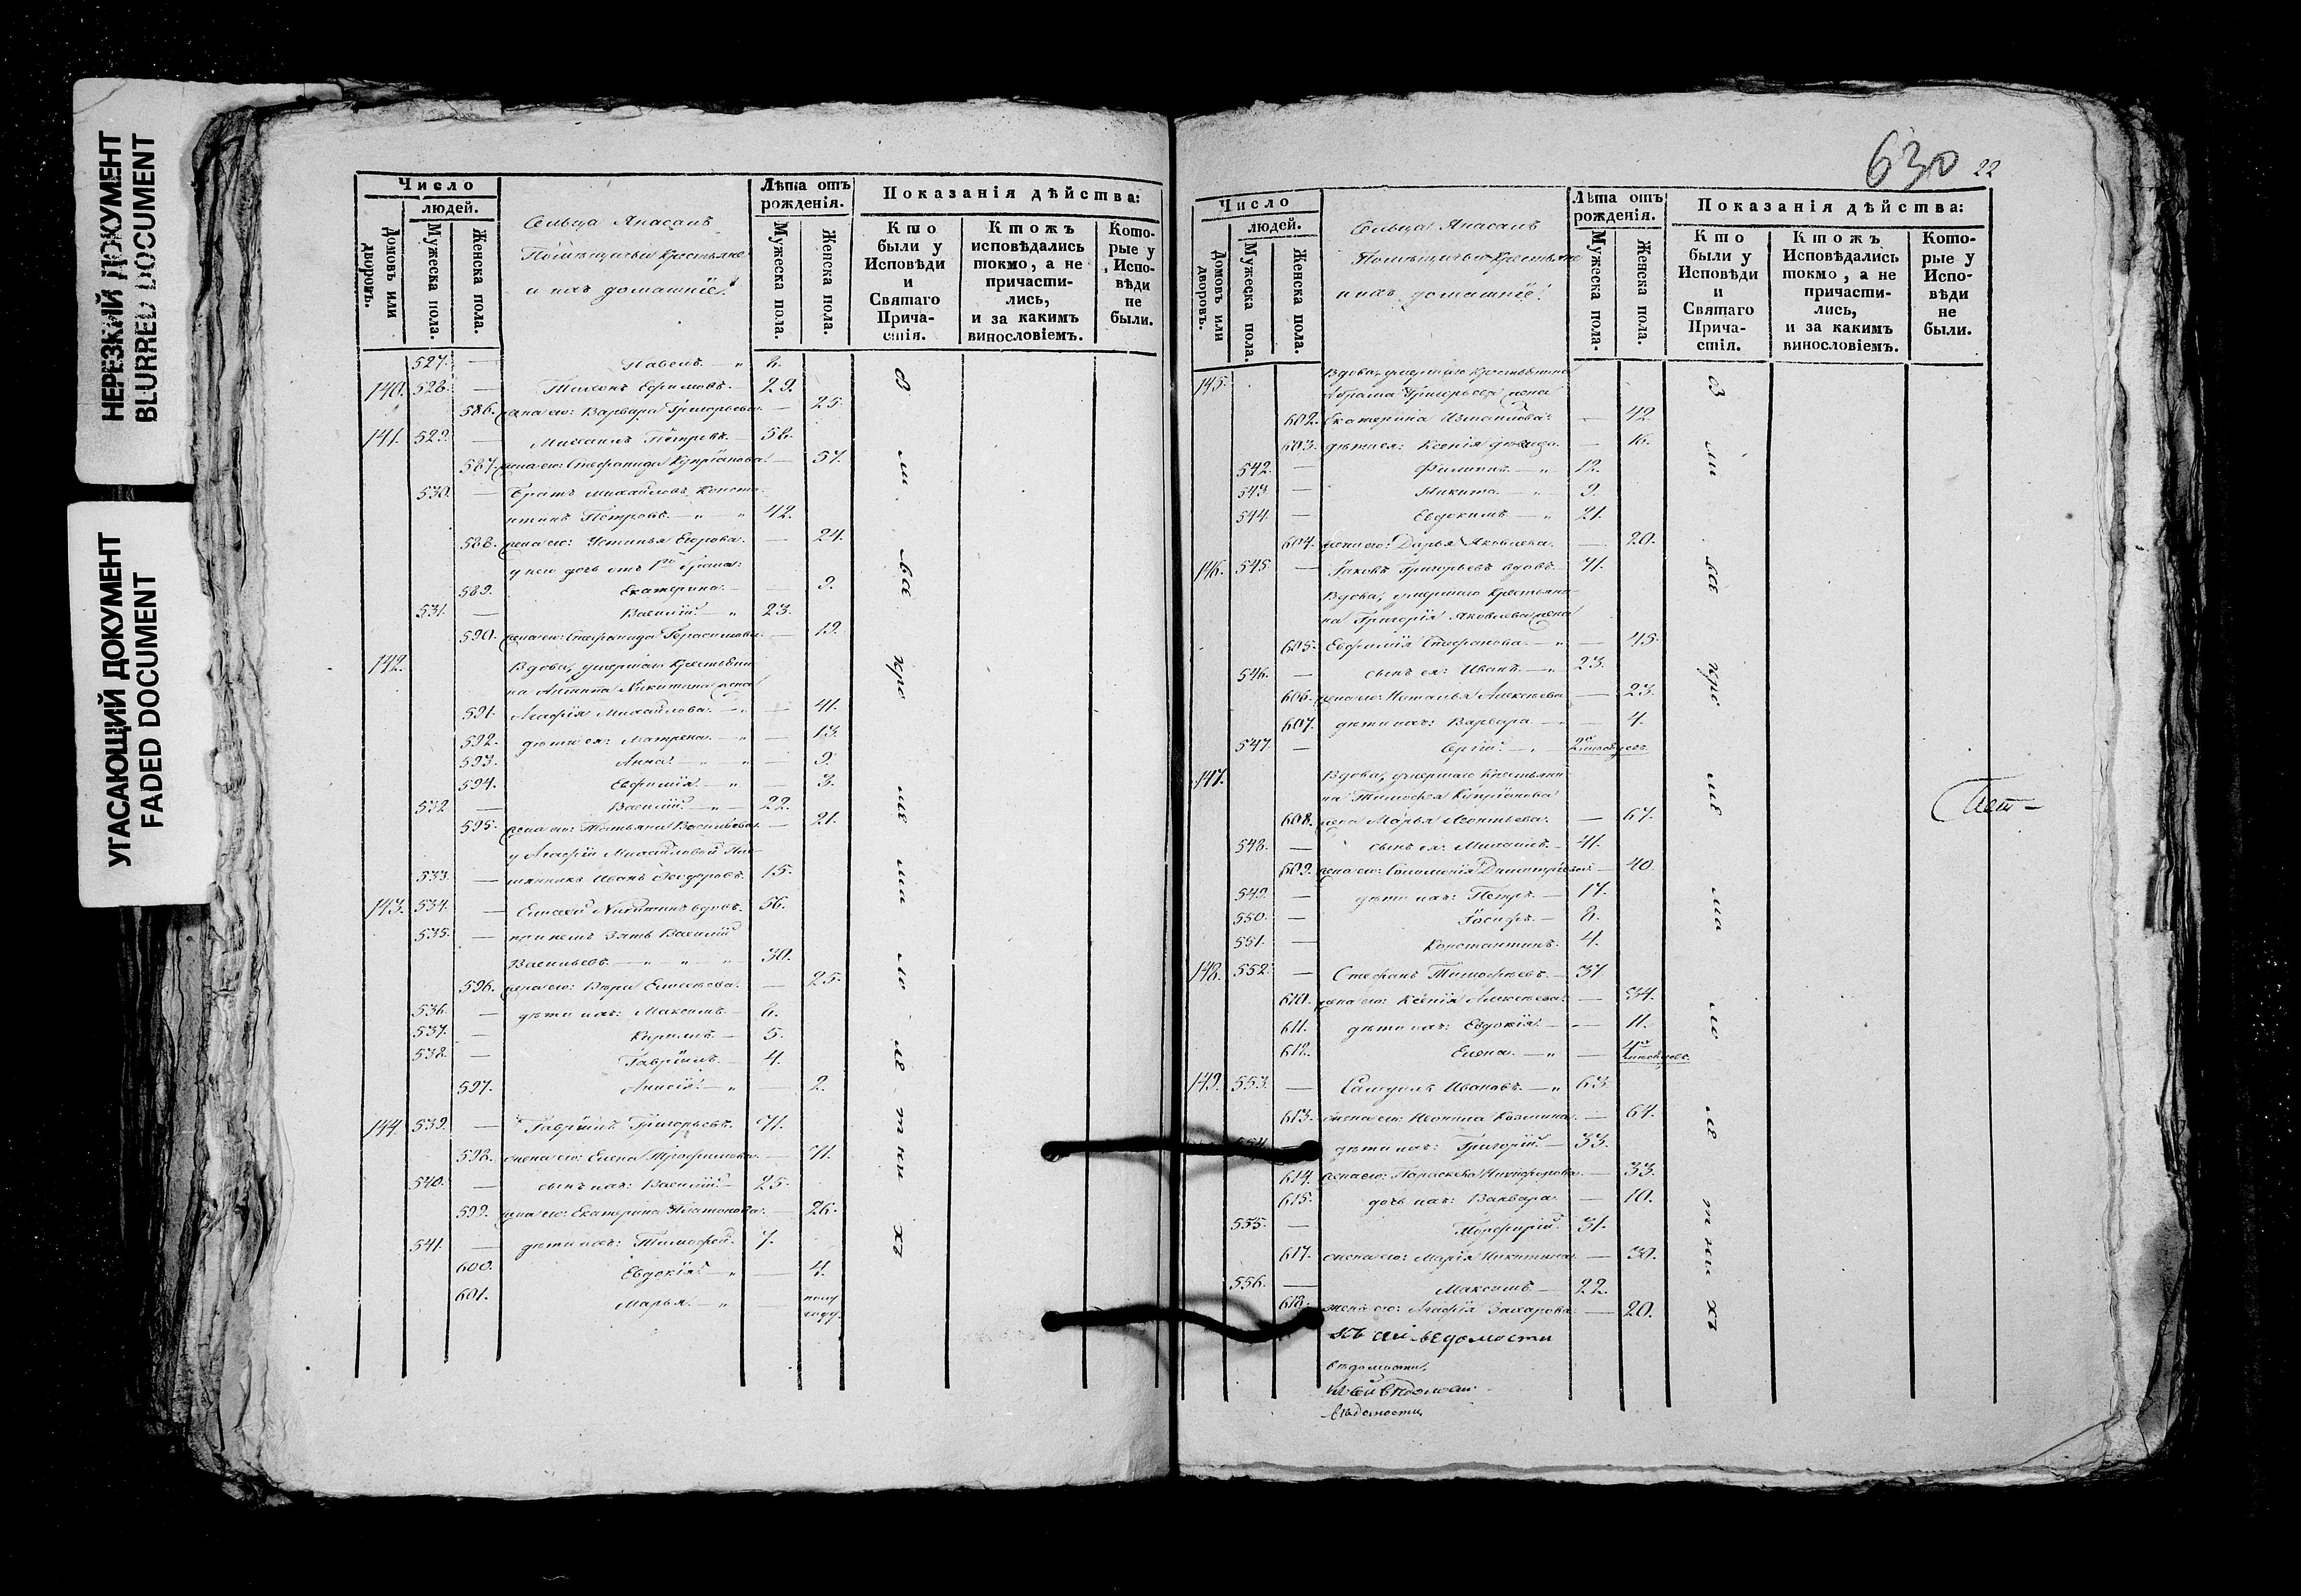 НЕРЕЗКИЙ ДОКУМЕНТ
BLURRED DOCUMENT
УГАСАЮЩИЙ ДОКУМЕНТ
FADED DOCUMENT
Число
людей.
Домовъ или дворовъ.
Мужеска пола.
Женска пола.
Сельца Апасапъ
Помѣщичьи Крестьяне
и ихъ домашніе.
Лѣта отъ рожденія.
Мужеска пола.
Женска пола.
Показанія дѣйства:
Кто были у Исповѣди и Святаго Причастія.
Ктожъ исповѣдались токмо, а не причастились, и за какимъ винословіемъ.
Которые у Исповѣди не были.
527. — Павелъ. — „ 6.
140. 528. — Тихонъ Ефимовъ. — 29.
586. жена его: Варвара Григорьева. — 25.
141. 529. — Михаилъ Петровъ. — 58.
587. жена его: Стефанида Купріанова. — 57.
530. — Братъ Михайловъ Конста
нтинъ Петровъ. — „ — „ 42.
588. жена его: Устинья Егорова. — 24.
у него дочь отъ 1го брака:
589. Екатерина. — — 9.
531. — Василій. — „ 23.
590. жена его: Стефанида Герасимова. — 19.
142. Вдова, умершаго Крестьяни
на Антипа Никитина жена
591. Агафія Михайлова. — „ — 41.
592. дѣти ея: Матрена. — „ — 13.
593. Анна. — „ — „ — 9.
594. Евфимія. — „ — 3.
532 — Василій. — „ — 22.
595. жена его: Татьяна Васильева. — 21.
у Агафіи Михайловой пле
533. — мянникъ Иванъ Ѳеодоровъ. 15.
143. 534. — Елисей Никитинъ вдовъ. 56.
535. — при немъ зять Василій
Васильевъ. — „ — „ — „ 30.
596. жена его: Вѣра Елисеева. — 25.
536. — дѣти ихъ: Максимъ. — 6.
537. — Кирилъ. — 5.
538. — Гавріилъ. — 4.
597. Анисія. — „ — 2.
144. 539. — Гавріилъ Григорьевъ. 71.
598. жена его: Елена Трофимова. — 71.
540. — сынъ ихъ: Василій. — 25.
599. жена его: Екатерина Платонова. — 26.
541. — дѣти ихъ: Тимофей. 7.
600. Евдокія. — „ — 4.
601. Марья. — „ полу
году.
630 22
Число
людей.
Домовъ или дворовъ.
Мужеска пола.
Женска пола.
Сельца Апасапъ
Помѣщичьи Крестьяне
и ихъ домашніе.
Лѣта отъ рожденія.
Мужеска пола.
Женска пола.
Показанія дѣйства:
Кто были у Исповѣди и Святаго Причастія.
Ктожъ Исповѣдались токмо, а не причастились, и за какимъ винословіемъ.
Которые у Исповѣди не были.
145. Вдова, умершаго Крестьянина
Абрама Григорьева жена
602. Екатерина Измайлова. — 42.
603. дѣти ея: Ксенія дѣвица. — 16.
542. — Филиппъ. — „ 12.
543 — Никита. — „ 9.
544. — Евдокимъ. — „ 21.
604. жена его: Дарья Яковлева. — 20.
146. 545 — Іаковъ Григорьевъ вдовъ. — 71.
Вдова, умершаго Крестьяни
на Григорія Яковлева жена
605. Евфимія Стефанова. — „ — 45.
546. — сынъ ея: Иванъ. — „ 23.
606. жена его: Наталья Алексѣева. — 23.
607. дѣти ихъ: Варвара. — „ — 4.
547. — Сергій. — „
147. Вдова, умершаго Крестьяни
на Тимофея Купріанова
608. жена Марья Леонтьева. — 67.
548. — сынъ ея: Михаилъ. — 41.
609. жена его: Соломонія Димитріева. — 40.
549. — дѣти ихъ: Петръ. — 17.
550. — Іосифъ. — 8.
551. — Константинъ. 4.
148. 552. — Стефанъ Тимофѣевъ. — 37
610. жена его: Ксенія Алексѣева. — 34.
611. дѣти ихъ: Евдокія. — — 11.
612. Елена. — „ —
149. 553. — Самуилъ Ивановъ. — „ 63.
613. жена его: Неонила Козмина. — 64.
554. — дѣти ихъ: Григорій. — 33.
614. жена его: Параскева Никифорова. — 33.
615. дочь ихъ: Варвара. — 10.
555. — Порфирій. 31.
617. жена его: Марія Никитина. — 30.
556. — Максимъ. — 22.
618. жена его: Агафія Захарова. — 20.
къ сей ведомости
ведомости,
ведомости,